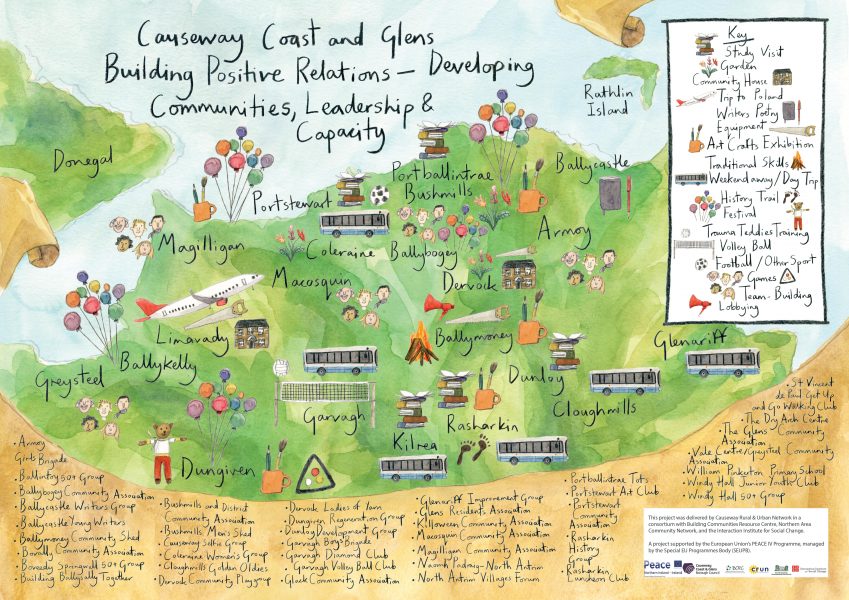 Causeway Coast and Glens
Building Positive Relations – Developing
Communities, Leadership &
Capacity
Donegal
Rathlin
Island
Key
Study Visit
Garden
Community House
Trip to Poland
Writers Poetry
Equipment
Art Crafts Exhibition
Traditional Skills
Weekend away/Day Trip
History Trail
Festival
Trauma Teddies Training
Volley Ball
Football/Other Sport
Games
Team-Building
Lobbying
Portballintrae
Bushmills
Ballycastle
Portstewart
Magilligan
Coleraine
Ballybogey
Armoy
Macosquin
Dervock
Limavady
Ballymoney
Glenariff
Ballykelly
Greysteel
Dunloy
Cloughmills
Garvagh
Rasharkin
Kilrea
Dungiven
• Armoy
Girls Brigade
• Ballintoy 50+ Group
• Ballybogey Community Association
• Ballycastle Writers Group
• Ballycastle Young Writers
• Ballymoney Community Shed
• Bovally Community Association
• Boveedy Springwell 50+ Group
• Building Ballysally Together
• Bushmills and District
Community Association
• Bushmills Men's Shed
• Causeway Shire Group
• Coleraine Women's Group
• Cloughmills Golden Oldies
• Dervock Community Playgroup
• Dervock Ladies of Yarn
• Dungiven Regeneration Group
• Dunloy Development Group
• Garvagh Boys Brigade
• Garvagh Diamond Club
• Garvagh Volley Ball Club
• Glack Community Association
• Glenariff Improvement Group
• Glens Residents Association
• Killowen Community Association
• Macosquin Community Association
• Magilligan Community Association
• Naomh Padraig-North Antrim
• North Antrim Villages Forum
• Portballintrae Tots
• Portstewart Art Club
• Portstewart
Community
Association
• Rasharkin
History
Group
• Rasharkin
Luncheon Club
• St Vincent
de Paul Get Up
and Go Walking Club
• The Dry Arch Centre
• The Glens Community
Association
• Vale Centre/Greysteel Community
Association
• William Pinkerton Primary School
• Windy Hall Junior Youth Club
• Windy Hall 50+ Group
This project was delivered by Causeway Rural & Urban Network in a
consortium with Building Communities Resource Centre, Northern Area
Community Network, and the Interaction Institute for Social Change.
A project supported by the European Union's PEACE IV Programme, managed
by the Special EU Programmes Body (SEUPB).
Peace
Northern Ireland - Ireland
Causeway
Coast & Glens
Borough Council
crun